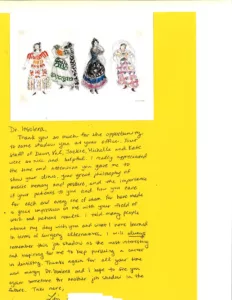 Dr. 
Thank you so much for the opportunity
to come shadow you at your office. Your
staff of Dawn, Jackie, Michelle and
were so nice and helpful. I really appreciated
the time and attention you gave me to
show your clinic, your great philosophy of
and the importance
of your patients to you and how you care
for each and every one of them. You have made
a great impression on me with your
work and personal I told many people
about my day with you and what I have learned
in terms of surgery alternatives. I will always
remember this job shadow as the most interesting
and inspiring for me to keep pursuing a career
in dentistry. Thanks again for all your time
and energy Dr. and I hope to see you
again sometime for another job shadow in the
future. Take care,